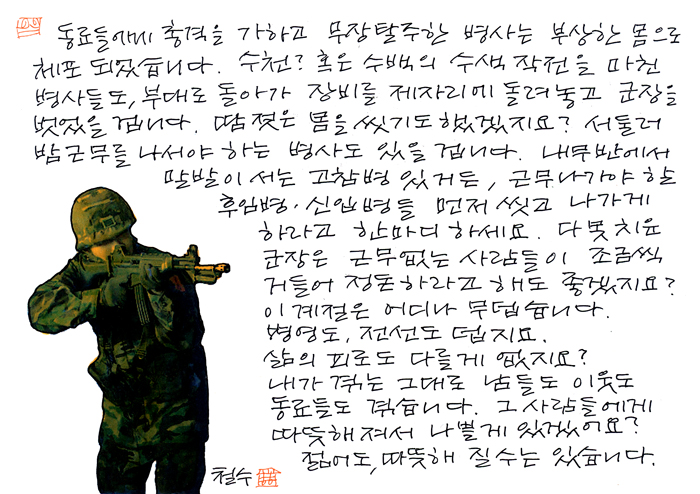 동료들에게 총격을 가하고 무장탈주한 병사는 부상한 몸으로
체포 되었습니다. 수천? 혹은 수백의 수색 작전을 마친
병사들도, 부대로 돌아가 장비를 제자리에 돌려놓고 군장을
벗었을 겁니다. 땀 젖은 몸을 씻기도 했겠지요? 서둘러
밤근무를 나서야 하는 병사도 있을 겁니다. 내무반에서
말발이 서는 고참병 있거든, 근무나가야 할
후임병·신입병들 먼저 씻고 나가게
하라고 한마디 하세요. 다 못 치운
군장은 근무없는 사람들이 조금씩
거들어 정돈하라고 해도 좋겠지요?
이 계절은 어디나 무덥습니다.
병영도, 전선도 덥지요.
삶의 피로도 다를게 없지요?
내가 겪는 그대로 남들도 이웃도
동료들도 겪습니다. 그 사람들에게
따뜻해져서 나쁠게 있겠어요?
젊어도, 따뜻해 질 수는 있습니다.
철수